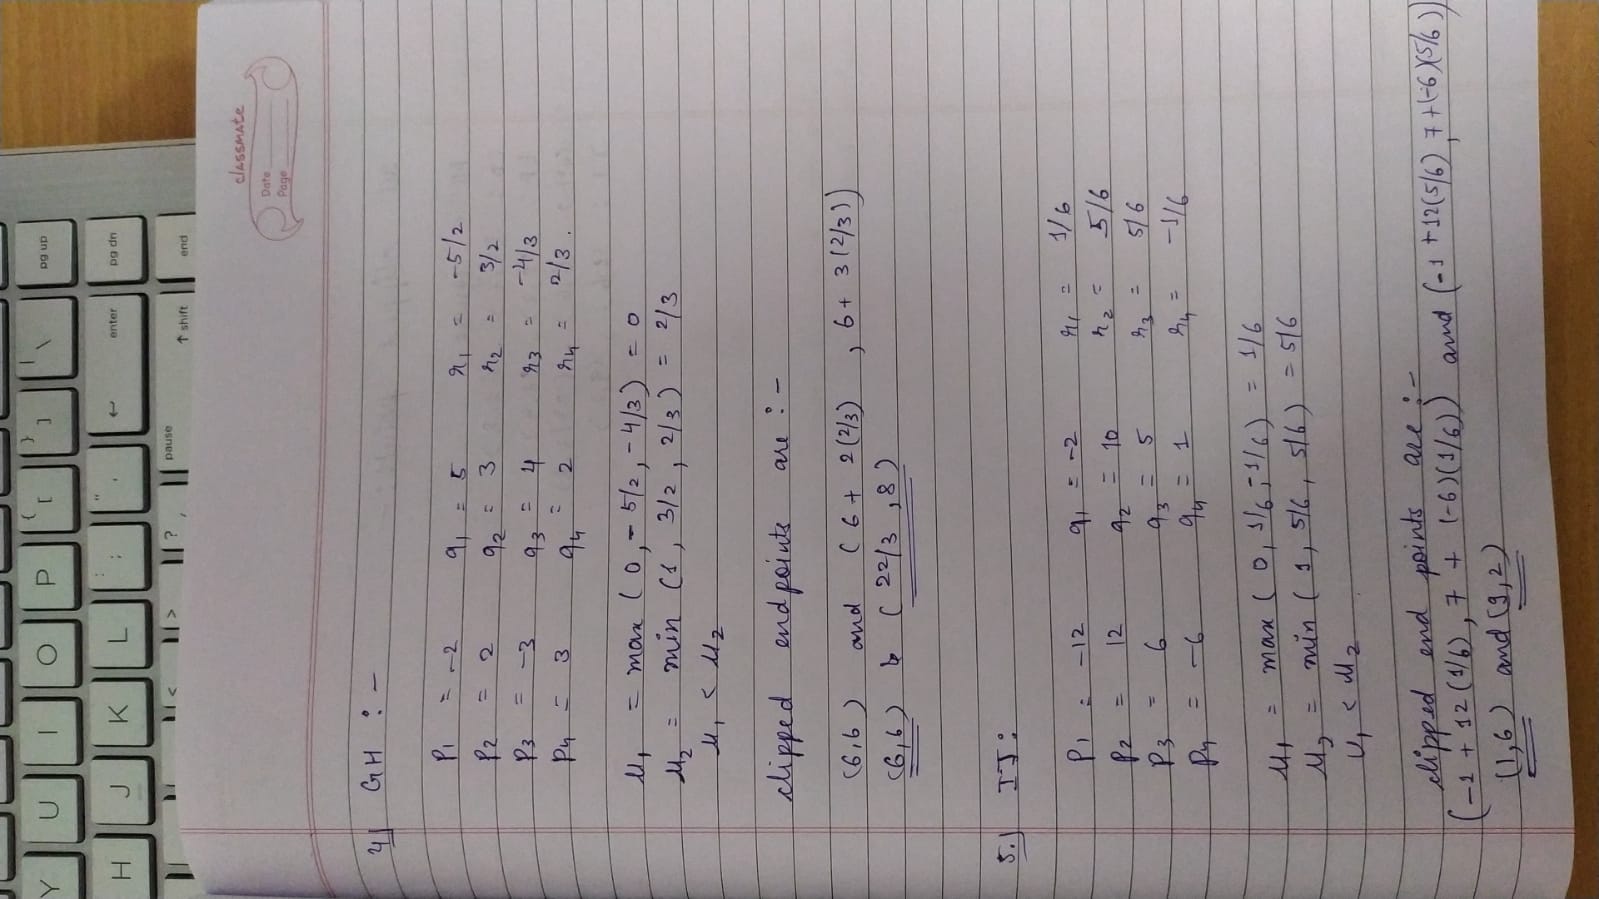 classmate
Date
Page
4] GH :-
P1 = -2 q1 = 5 r1 = -5/2
P2 = 2 q2 = 3 r2 = 3/2
P3 = -3 q3 = 4 r3 = -4/3
P4 = 3 q4 = 2 r4 = 2/3.
u1 = max (0, -5/2, -4/3) = 0
u2 = min (1, 3/2, 2/3) = 2/3
u1 < u2
clipped endpoints are :-
(6,6) and (6 + 2(2/3), 6 + 3(2/3))
(6,6) & (22/3, 8)
5.] IJ:
P1 = -12 q1 = -2 r1 = 1/6
P2 = 12 q2 = 10 r2 = 5/6
P3 = 6 q3 = 5 r3 = 5/6
P4 = -6 q4 = 1 r4 = -1/6
u1 = max (0, 1/6, -1/6) = 1/6
u2 = min (1, 5/6, 5/6) = 5/6
u1 < u2
clipped end points are :-
(-1 + 12(1/6), 7 + (-6)(1/6)) and (-1 + 12(5/6), 7 + (-6)(5/6))
(1,6) and (9,2)
Y U I O P { [ } ] | \ pg up
H J K L : ; " ' enter pg dn
< > ? / pause shift end